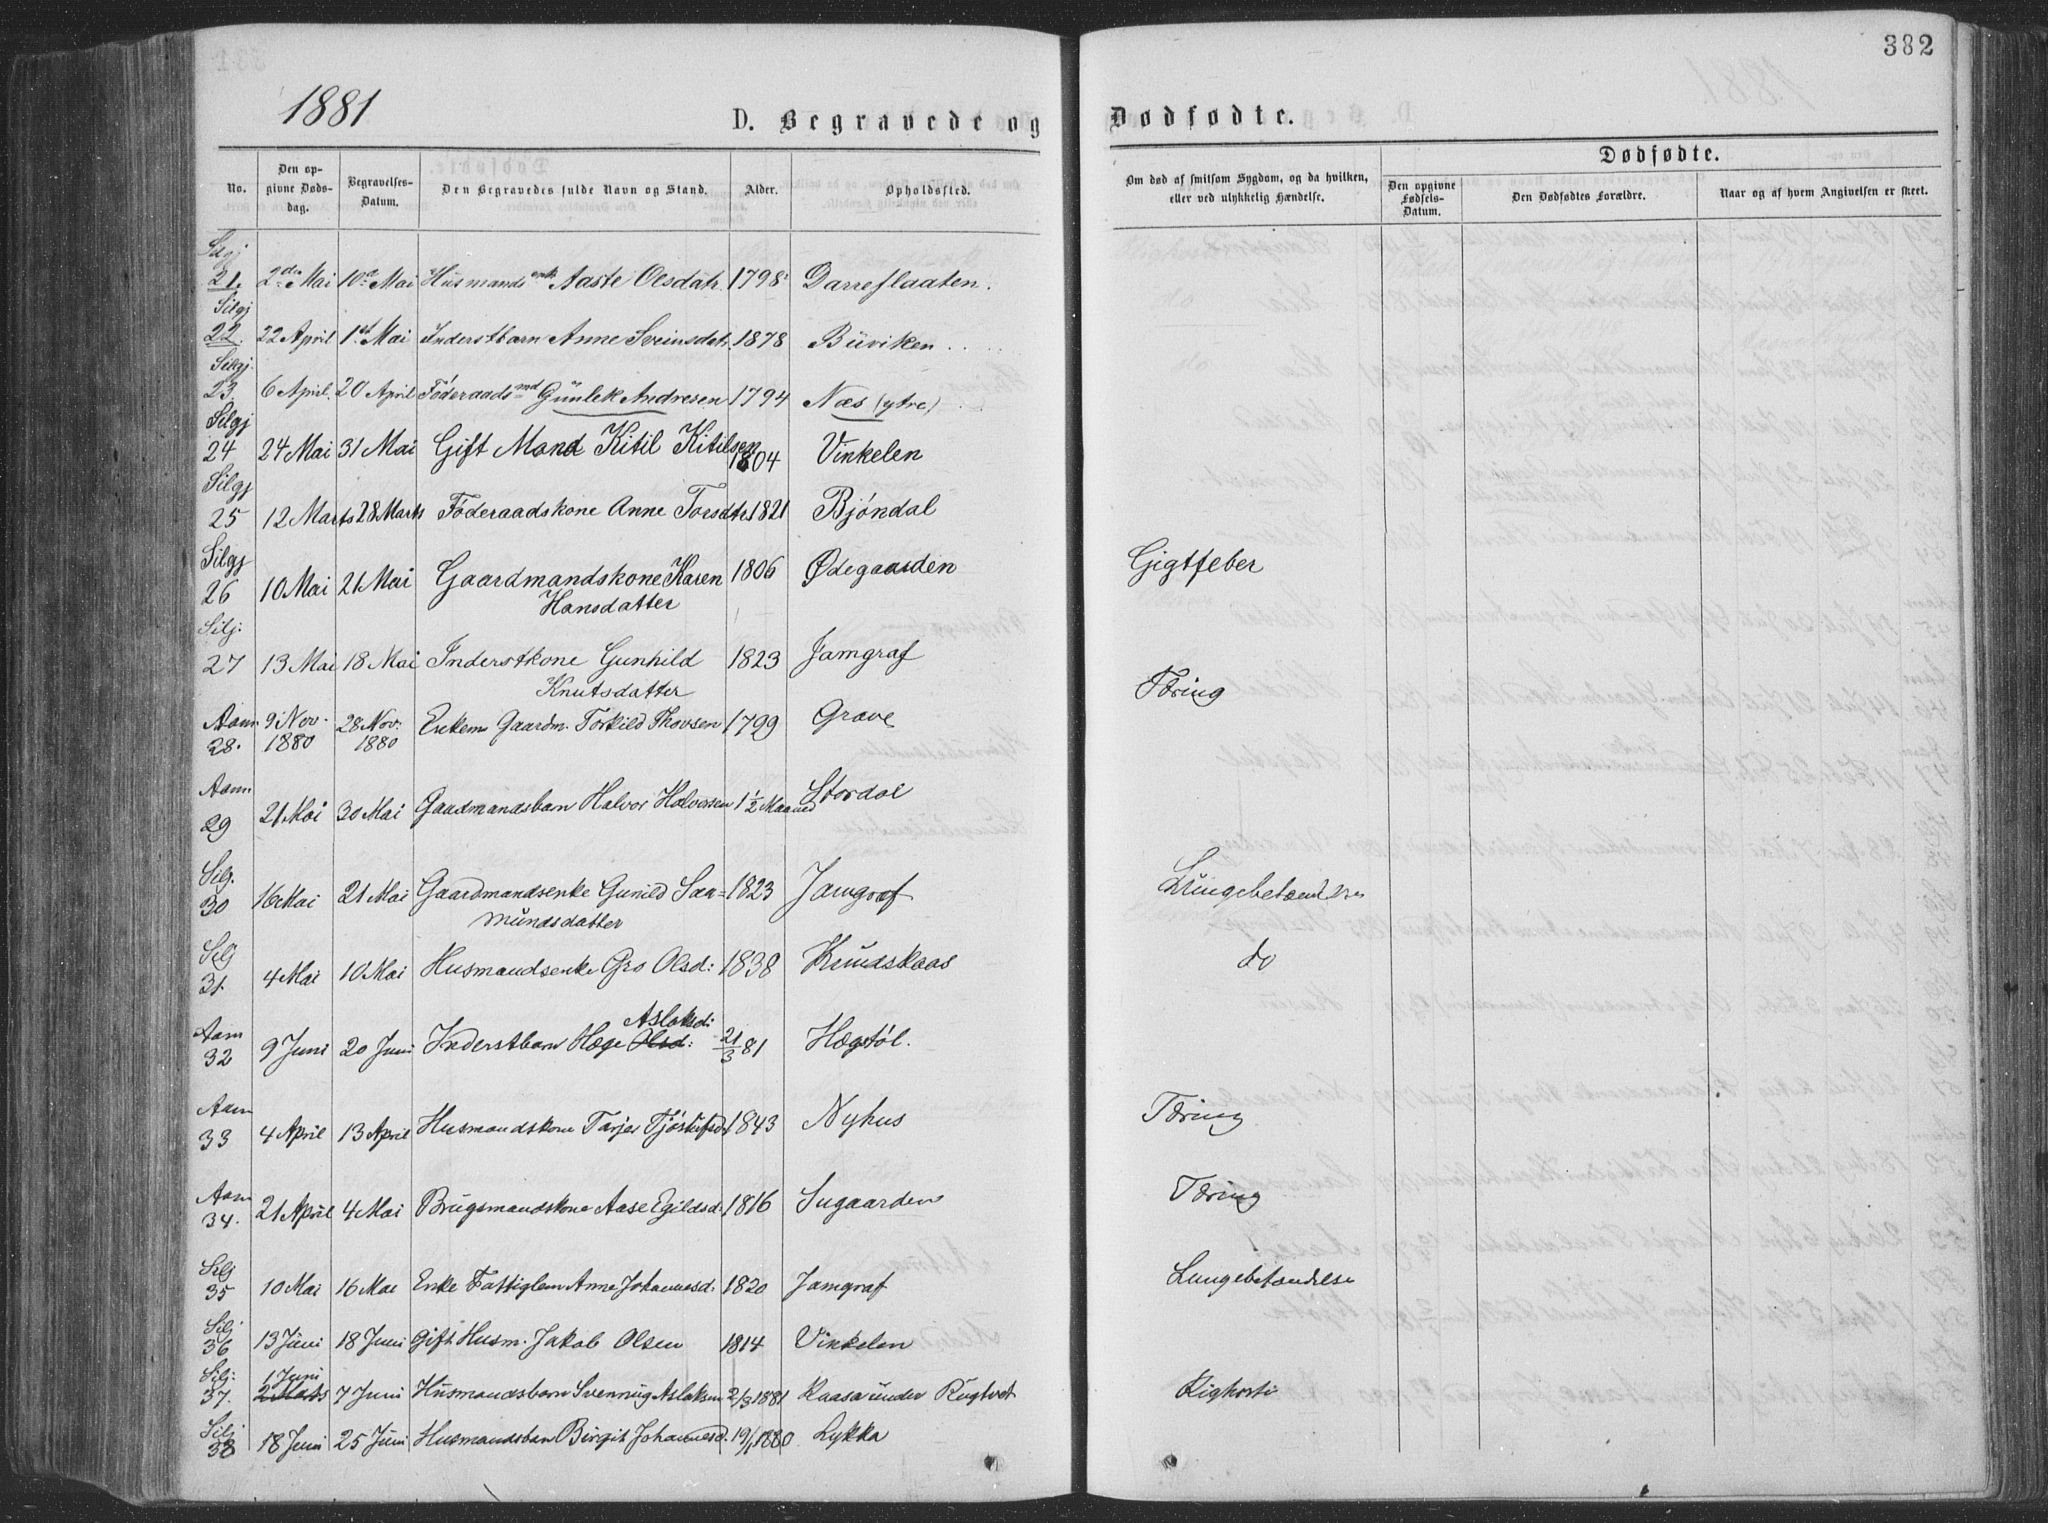 382
1881
D. Begravede og Dødfødte.
No. | Den opgivne Dødsdag. | Begravelses-Datum. | Den Begravedes fulde Navn og Stand. | Alder. | Opholdssted. | Om død af smitsom Sygdom, og da hvilken, eller ved ulykkelig Hændelse. | Dødfødte. | Den opgivne Fødsels-Datum. | Den Dødfødtes Forældre. | Naar og af hvem Angivelsen er skeet.
21. 2den Mai 10de Mai Husmandsenke Aaste Olsdatr. 1798 Darreflaaten.
Silgj 22. 22 April 1st Mai Inderstbarn Anne Sveinsdatr. 1878 Büviken
Silgj. 23. 6 April. 20 April Föderaadsmd Günlek Andresen 1794 Næs (ytre)
Silgj 24 24 Mai 31 Mai Gift Mand Kitil Kitilsen 1804 Vinkelen
Silgj 25 12 Marts 28 Marts Föderaadskone Anne Torsdtr. 1821 Bjöndal
Silgj 26 10 Mai 21 Mai Gaardmandskone Karen 1806 Ødegaarden Gigtfeber
Hansdatter
Silj. 27 13 Mai 18 Mai Inderstkone Gunhild 1823 Jamgraf Tæring
Knutsdatter
Aam 28. 9 Nov. 1880 28 Nov. 1880 Enkem Gaardm. Torkild Thovsen 1799 Grave
Aam 29 21 Mai 30 Mai Gaardmandsbarn Halvor Halvorsen 1 1/2 Maaned Stordal
Silg. 30 16 Mai 21 Mai Gaardmandsenke Gunild Saa= 1823 Jamgraf Lüngebetændelse
mündsdatter
Silj 31. 4 Mai 10 Mai Husmandsenke Gro Olsd: 1838 Knudskaas do
Aam 32 9 Juni 20 Juni Inderstbarn Hæge Olsd: Aslaksd: 21/3 81 Hægtöl.
Aam 33 4 April 13 April Husmandskone Tarjer Tjöstufsd 1843 Nyhus Tæring
Aam 34. 21 April 4 Mai Brügsmandskone Aase Egildsd: 1816 Sugaarden Tæring
Silj 35 10 Mai 16 Mai Enke Fattiglem Anne Johannesd: 1820 Jamgraf Lungebetændelse
Silj 36 13 Jüni 18 Juni Gift Husm. Jakob Olsen 1814 Vinkelen
Silj: 37. 1 Juni 2 Marts 7 Juni Hüsmandsbarn Svennug Aslaksen 2/3 1881 Kaasa ünder Rügtvet Kighoste
Silj 38 18 Juni 25 Jüni Husmandsbarn Birgit Johannesd. 19/1 1880 Lykka